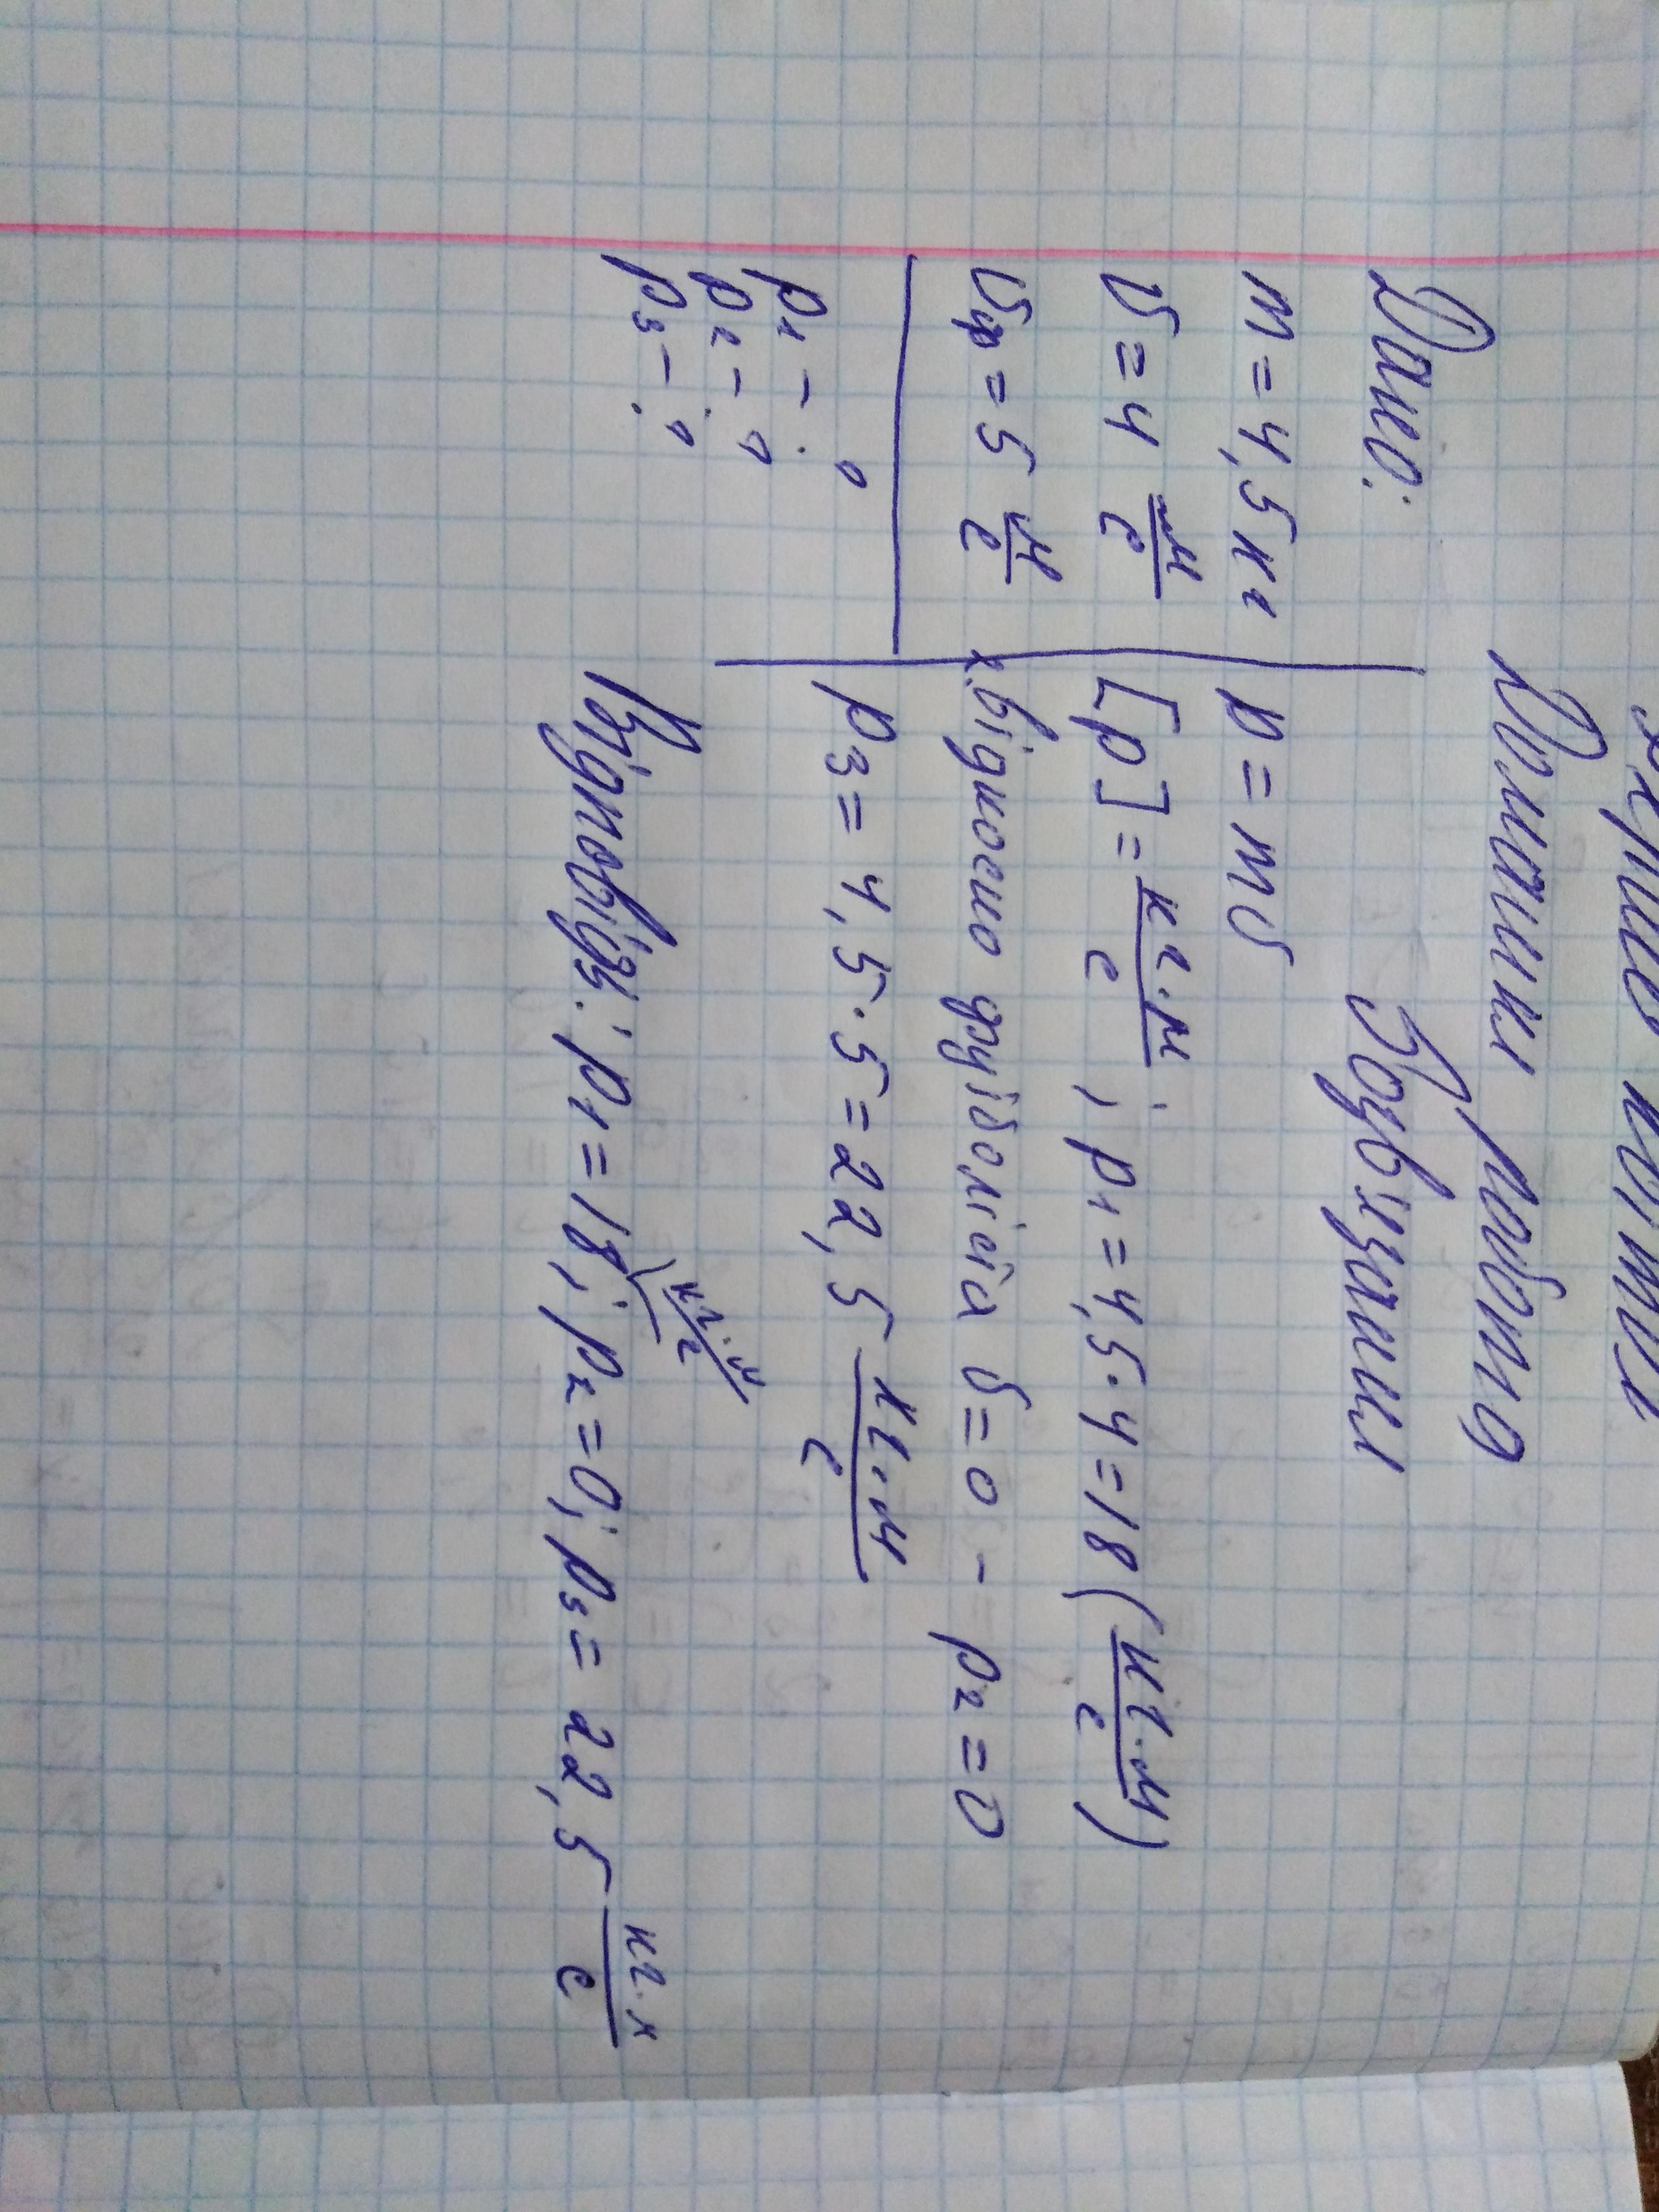 Домашня робота
Розв'язання
Дано:
m = 4,5 кг
υ = 4 м/с
υф = 5 м/с
p₁ - ?
p₂ - ?
p₃ - ?
p = mυ
[p] = кг·м/с ; p₁ = 4,5·4 = 18 (кг·м/с)
відносно футболіста υ = 0 - p₂ = 0
p₃ = 4,5·5 = 22,5 кг·м/с
Відповідь: p₁ = 18 (кг·м/с); p₂ = 0; p₃ = 22,5 кг·м/с